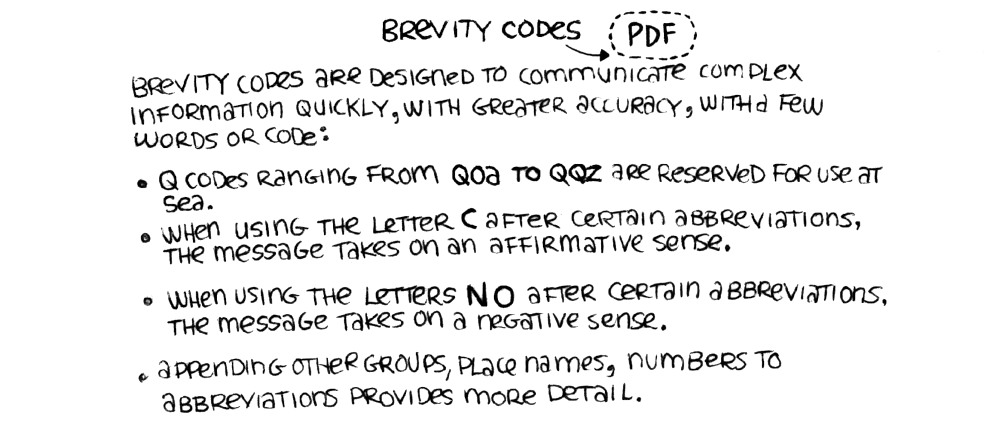 BREVITY CODES PDF
BREVITY CODES ARE DESIGNED TO COMMUNICATE COMPLEX
INFORMATION QUICKLY, WITH GREATER ACCURACY, WITH A FEW
WORDS OR CODE:
• Q CODES RANGING FROM QOA TO QQZ ARE RESERVED FOR USE AT
SEA.
• WHEN USING THE LETTER C AFTER CERTAIN ABBREVIATIONS,
THE MESSAGE TAKES ON AN AFFIRMATIVE SENSE.
• WHEN USING THE LETTERS NO AFTER CERTAIN ABBREVIATIONS,
THE MESSAGE TAKES ON A NEGATIVE SENSE.
• APPENDING OTHER GROUPS, PLACE NAMES, NUMBERS TO
ABBREVIATIONS PROVIDES MORE DETAIL.